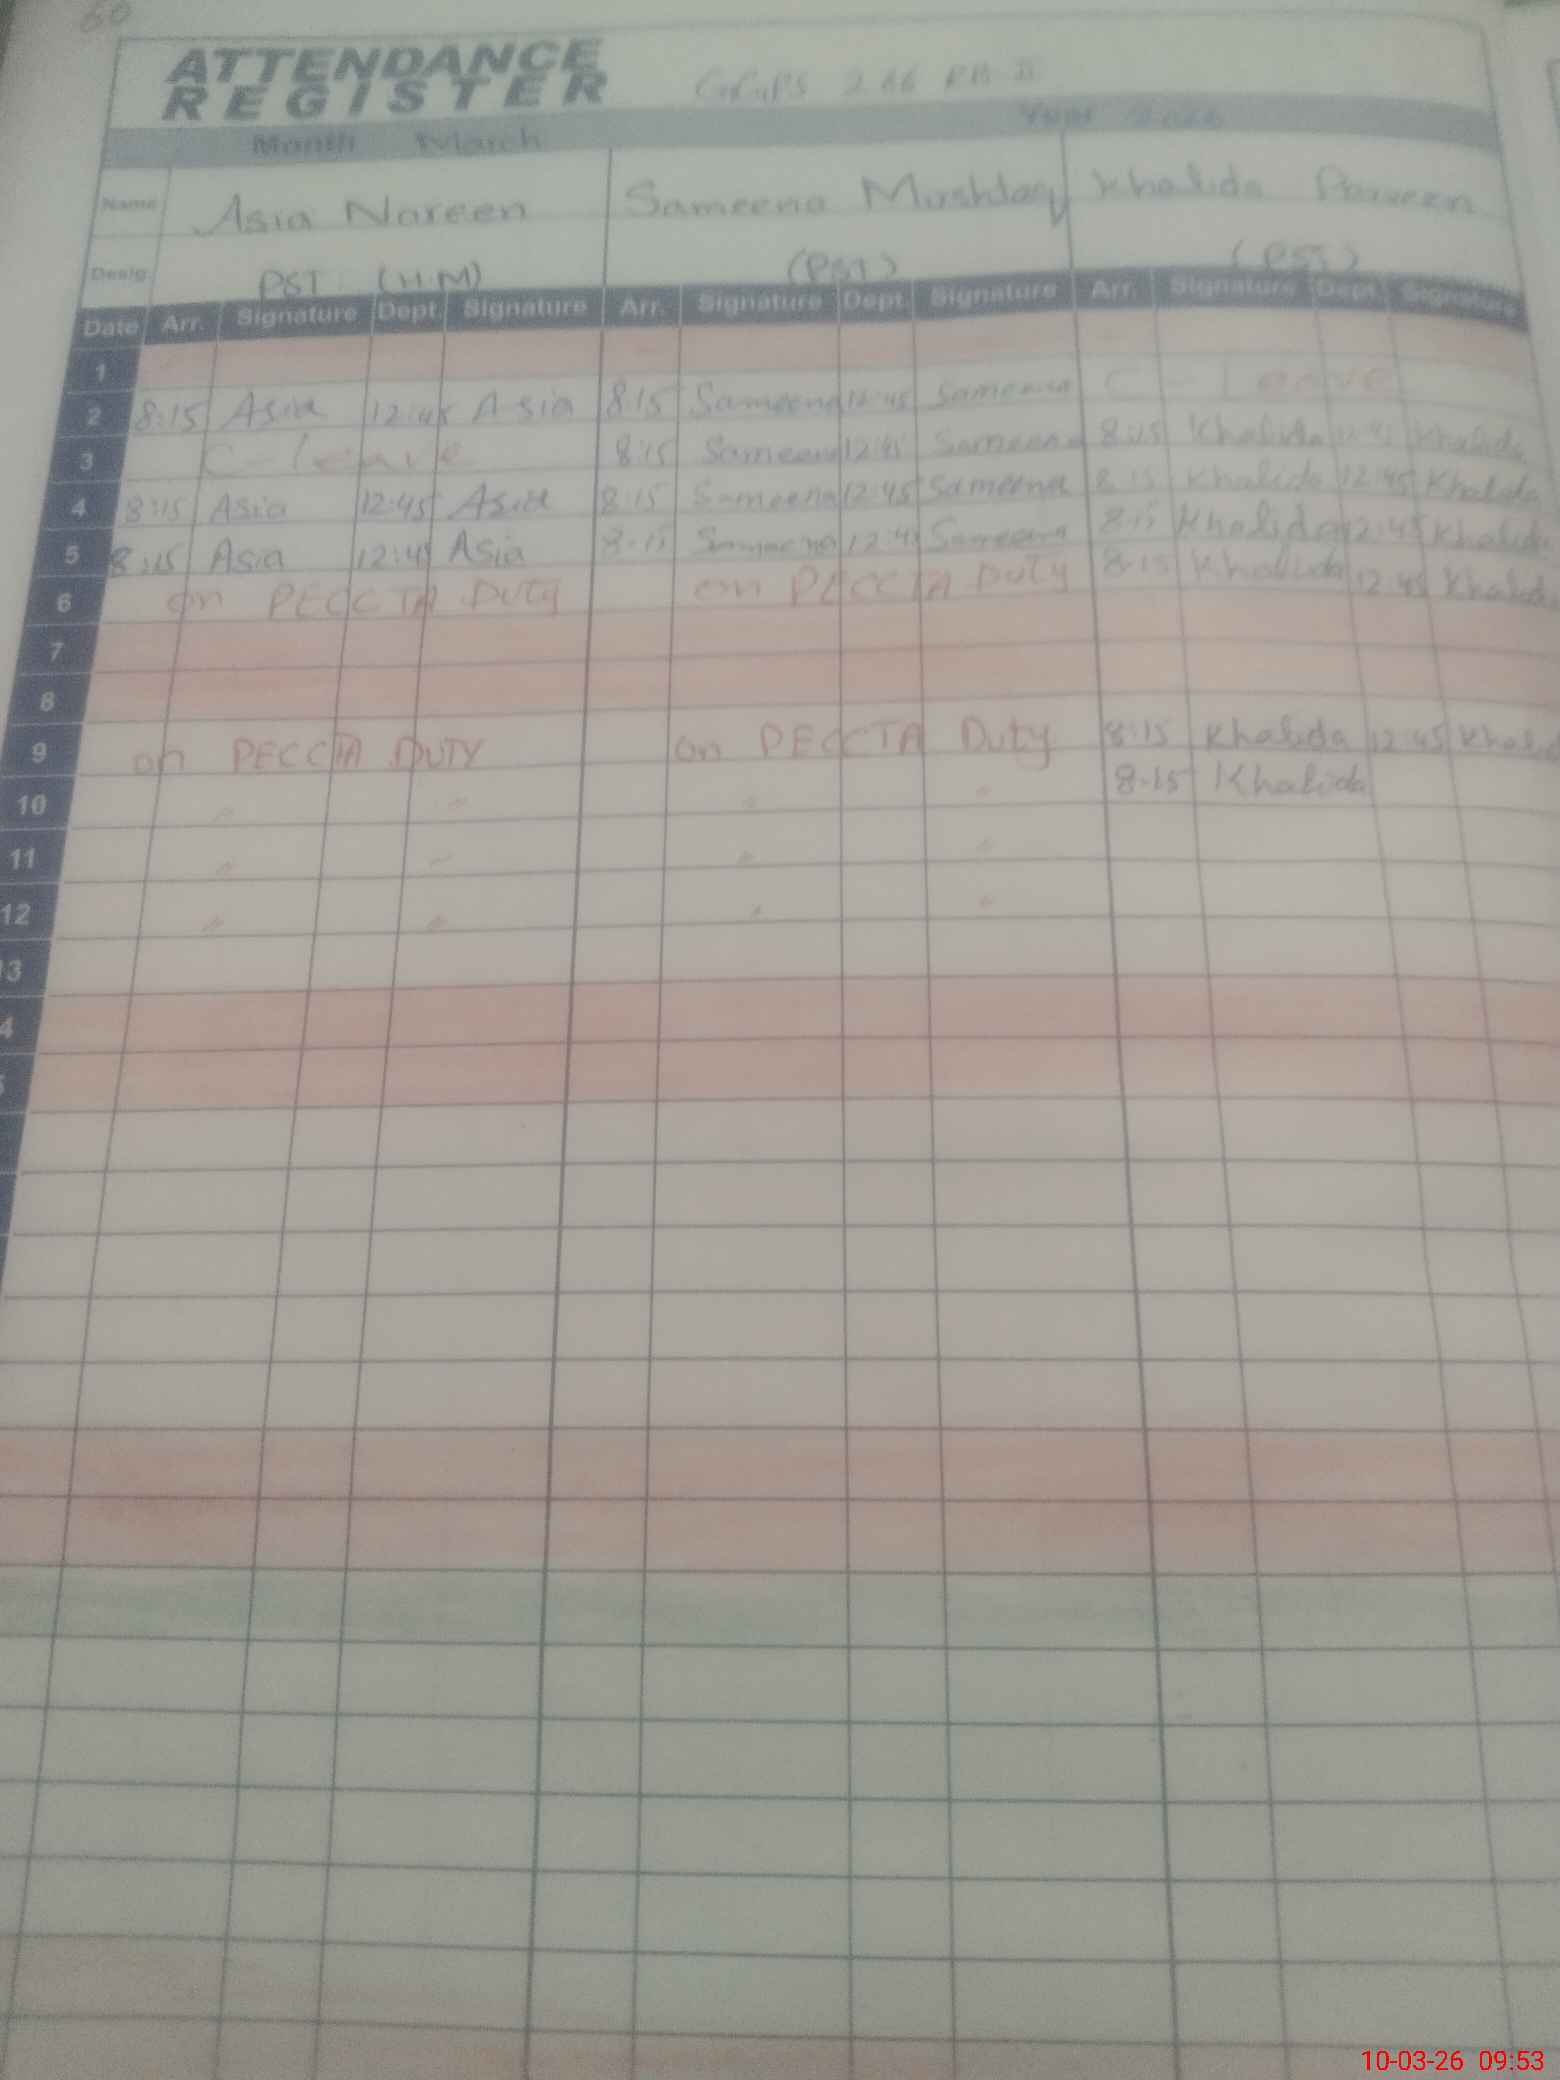 60
ATTENDANCE
REGISTER GGPS 266 RB II
Month March Year 2026
Name Asia Noreen Sameena Mushtaq Khalida Parveen
Desig. PST (H.M) (PST) (PST)
Date Arr. Signature Dept. Signature Arr. Signature Dept. Signature Arr. Signature Dept. Signature
1
2 8:15 Asia 12:45 Asia 8:15 Sameena 12:45 Sameena C-Leave
3 C-leave 8:15 Sameena 12:45 Sameena 8:15 Khalida 12:45 Khalida
4 8:15 Asia 12:45 Asia 8:15 Sameena 12:45 Sameena 8:15 Khalida 12:45 Khalida
5 8:15 Asia 12:45 Asia 8:15 Sameena 12:45 Sameena 8:15 Khalida 12:45 Khalida
6 on PECCTA DUTY on PECCTA DUTY 8:15 Khalida 12:45 Khalida
7
8
9 on PECCTA DUTY on PECCTA Duty 8:15 Khalida 12:45 Khalid
10 " " " " 8:15 Khalida
11 " " " "
12 " " " "
13
4
5
10-03-26 09:53